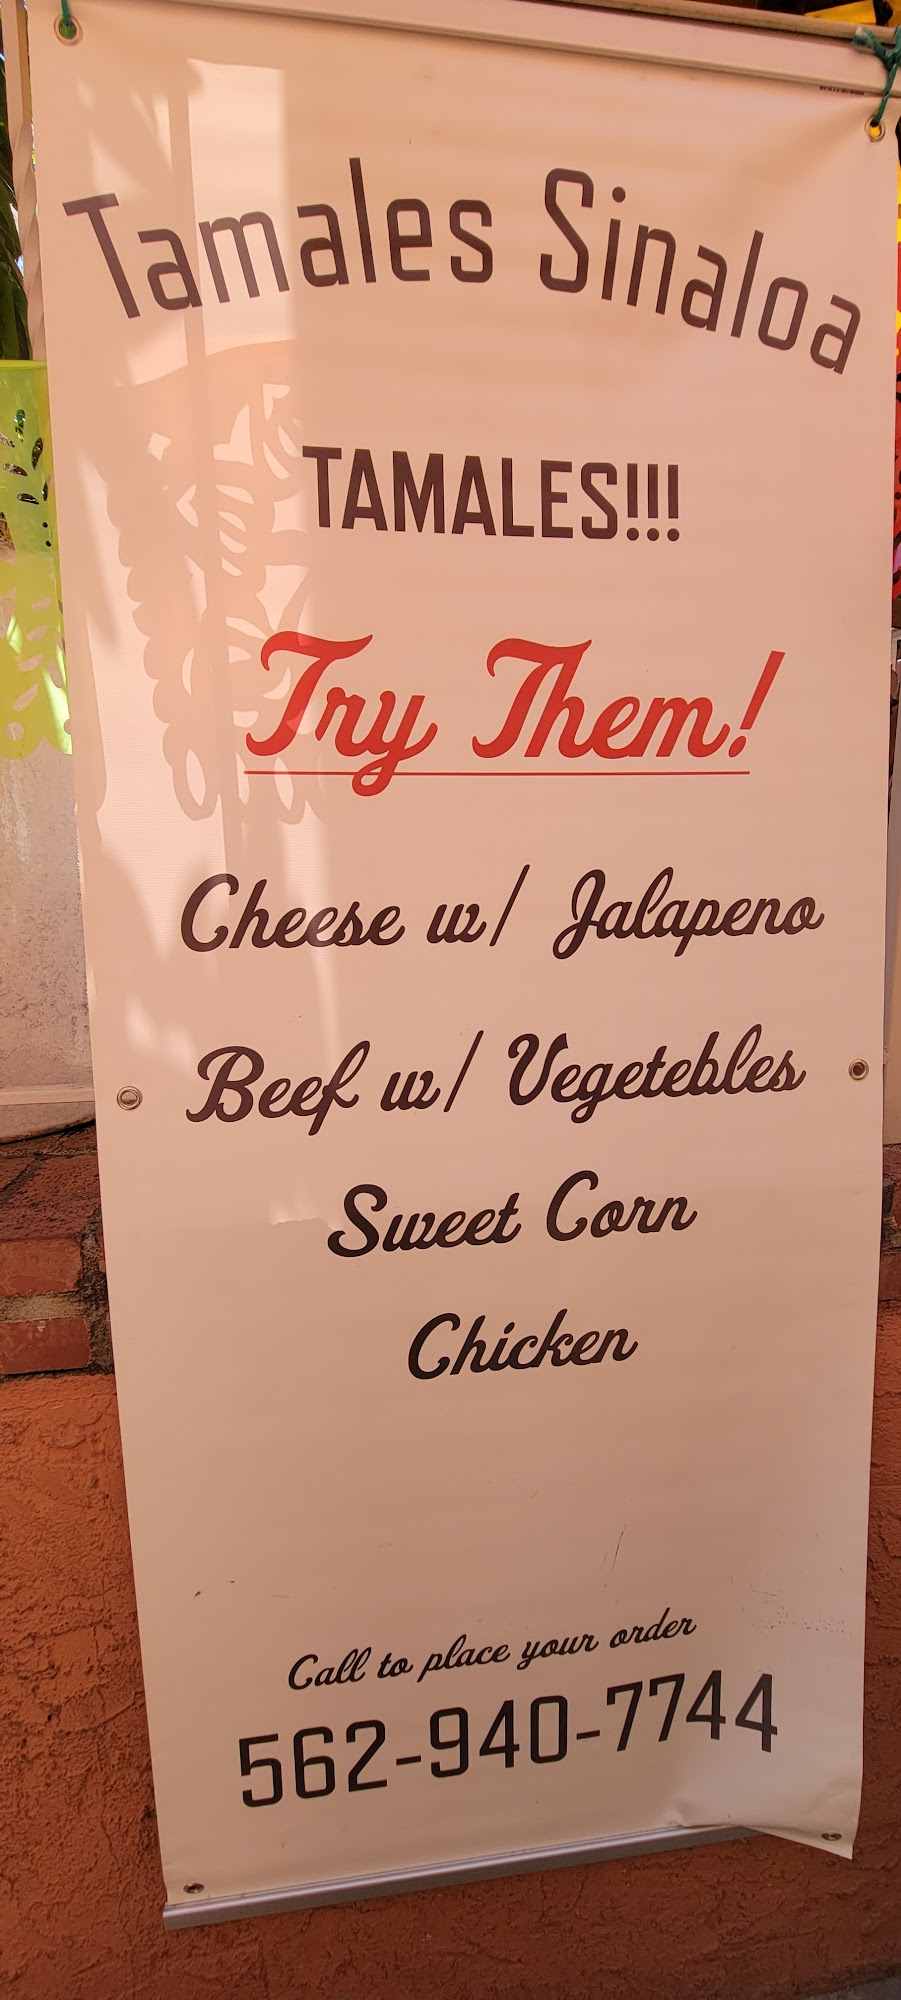 Tamales Sinaloa
TAMALES!!!
Try Them!
Cheese w/ Jalapeno
Beef w/ Vegetebles
Sweet Corn
Chicken
Call to place your order
562-940-7744